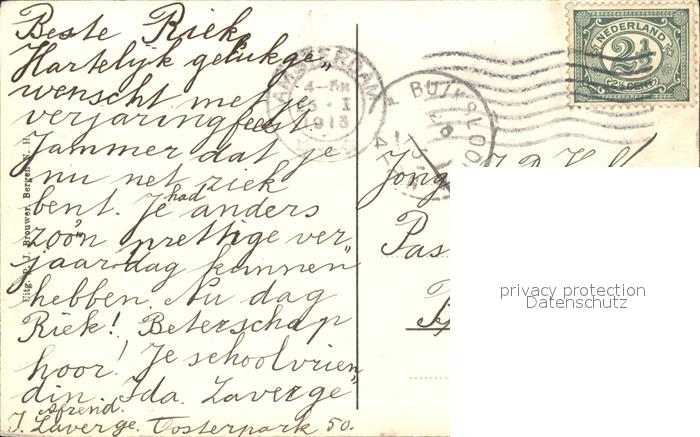 Beste Riek,
Hartelijk geluk ge„
wenscht met je
verjaringfeest.
Jammer dat je
nu net ziek
bent. Je had anders
zoo'n prettige ver„
jaardag kunnen
hebben. Nu dag
Riek! Beterschap
hoor! Je schoolvrien„
din. Ida Laverge
Afzend.
I. Laverge. Oosterpark 50.
Uitg. P. J. Brouwer, Bergen N. H.
AMSTERDAM
4-5 N
5 · I
1913
BUIKSLOOT
NEDERLAND
2½
2½ CENT
Jong
Pas
privacy protection
Datenschutz